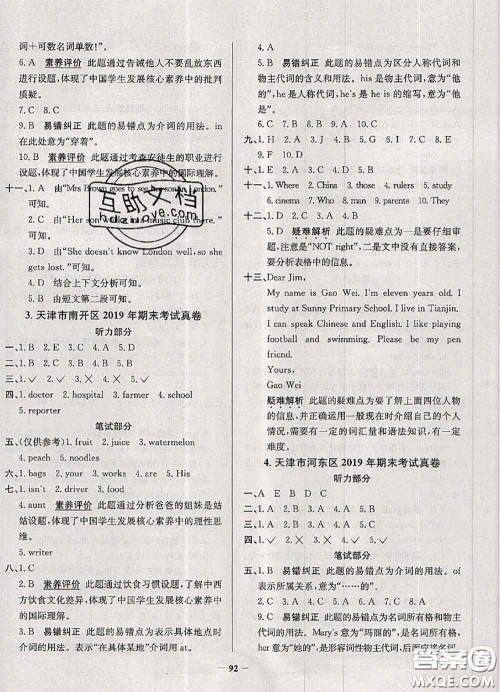 词+可数名词单数!”。
6. A 素养评价 此题通过告诫他人不要乱放东西
进行设题，体现了中国学生发展核心素养中的批判
质疑。
7. C 8. C
9. B 易错纠正 此题的易错点为介词的用法。in
在此处意为“穿着”。
10. B 素养评价 此题通过考查安徒生的职业进行
设题，体现了中国学生发展核心素养中的国际理解。
十一、1. A 由“Mrs Brown goes to see London.”
可知。
2. C 由 music club there.”
可知。
3. D 由“She doesn't know London well, so she
gets lost.”可知。
4. D 结合上下文分析可知。
5. B 由短文第二段可知。
3. 天津市南开区 2019 年期末考试真卷
听力部分
一、1. B 2. E 3. C 4. A 5. D
二、1. A 2. B 3. A 4. A 5. B
三、1. ✓ 2. ✓ 3. ✗ 4. ✗ 5. ✓
四、1. doctor 2. hospital 3. farmer 4. school
5. reporter
笔试部分
五、(仅供参考) 1. fruit 2. juice 3. watermelon
4. peach 5. noodles
六、1. bags 2. were 3. has 4. an 5. about
七、1. isn't 2. driver 3. old
4. aunt 素养评价 此题通过分析爸爸的姐妹是姑
姑设题，体现了中国学生发展核心素养中的理性思
维。
5. writer
八、1. C
2. B 素养评价 此题通过饮食习惯设题，了解中
西方饮食文化差异，体现了中国学生发展核心素养
中的国际理解
3. B 易错纠正 此题的易错点为表示具体地点时
介词的用法。表示“在具体某地”介词用 at。
4. A
5. B 易错纠正 此题的易错点为区分人称代词和
物主代词的含义和用法。his 是物主代词，意为“他
的”，he 是人称代词，he's 是 he is 的缩写，意为“他
是”。
6. C 7. B 8. B 9. C 10. A
九、1. B 2. H 3. A 4. J 5. G 6. C 7. E 8. I
9. F 10. D
十、1. Where 2. China 3. those 4. rulers 5. study
6. children 7. from 8. In 9. city 10. us
十一、1. D 2. A 3. E 4. B 5. C
十二、1. B 2. C
3. D 疑难解析 此题的疑难点为要仔细审题，
注意是“NOT right”，二是文中没有直接答案，
要分析表格中的信息。
十三、Dear Jim,
My name is Gao Wei. I'm eleven years old.
I study at Sunny Primary School. I live in Tianjin.
I can speak Chinese and English. I like playing
football and swimming. Please tell me about you.
Yours,
Gao Wei
疑难解析 此题的疑难点为要了解上面四位人物
的信息，并满足文中需求，写出自己的个人情况。
需要有一定的词汇量和语法知识，有一定的语言
组织能力。
4. 天津市河东区 2019 年期末考试真卷
听力部分
一、A E B D C
二、1. A 2. C 3. B 4. A 5. C
三、1. B 2. A 3. D 4. C
四、1. ✓ 2. ✗ 3. ✓ 4. ✓ 5. ✗
笔试部分
五、1. B 易错纠正 此题的易错点为介词的用法。of
表示所属关系，意为“……的”。
2. C 3. B
4. C 易错纠正 此题的易错点为名词所有格和物
主代词的用法。Mary's 意为“玛丽的”，是名词所有
格，her 意为“她的”，是形容词性物主代词，后接名词，
92
互助文档
hdzuoye.com
答案圈